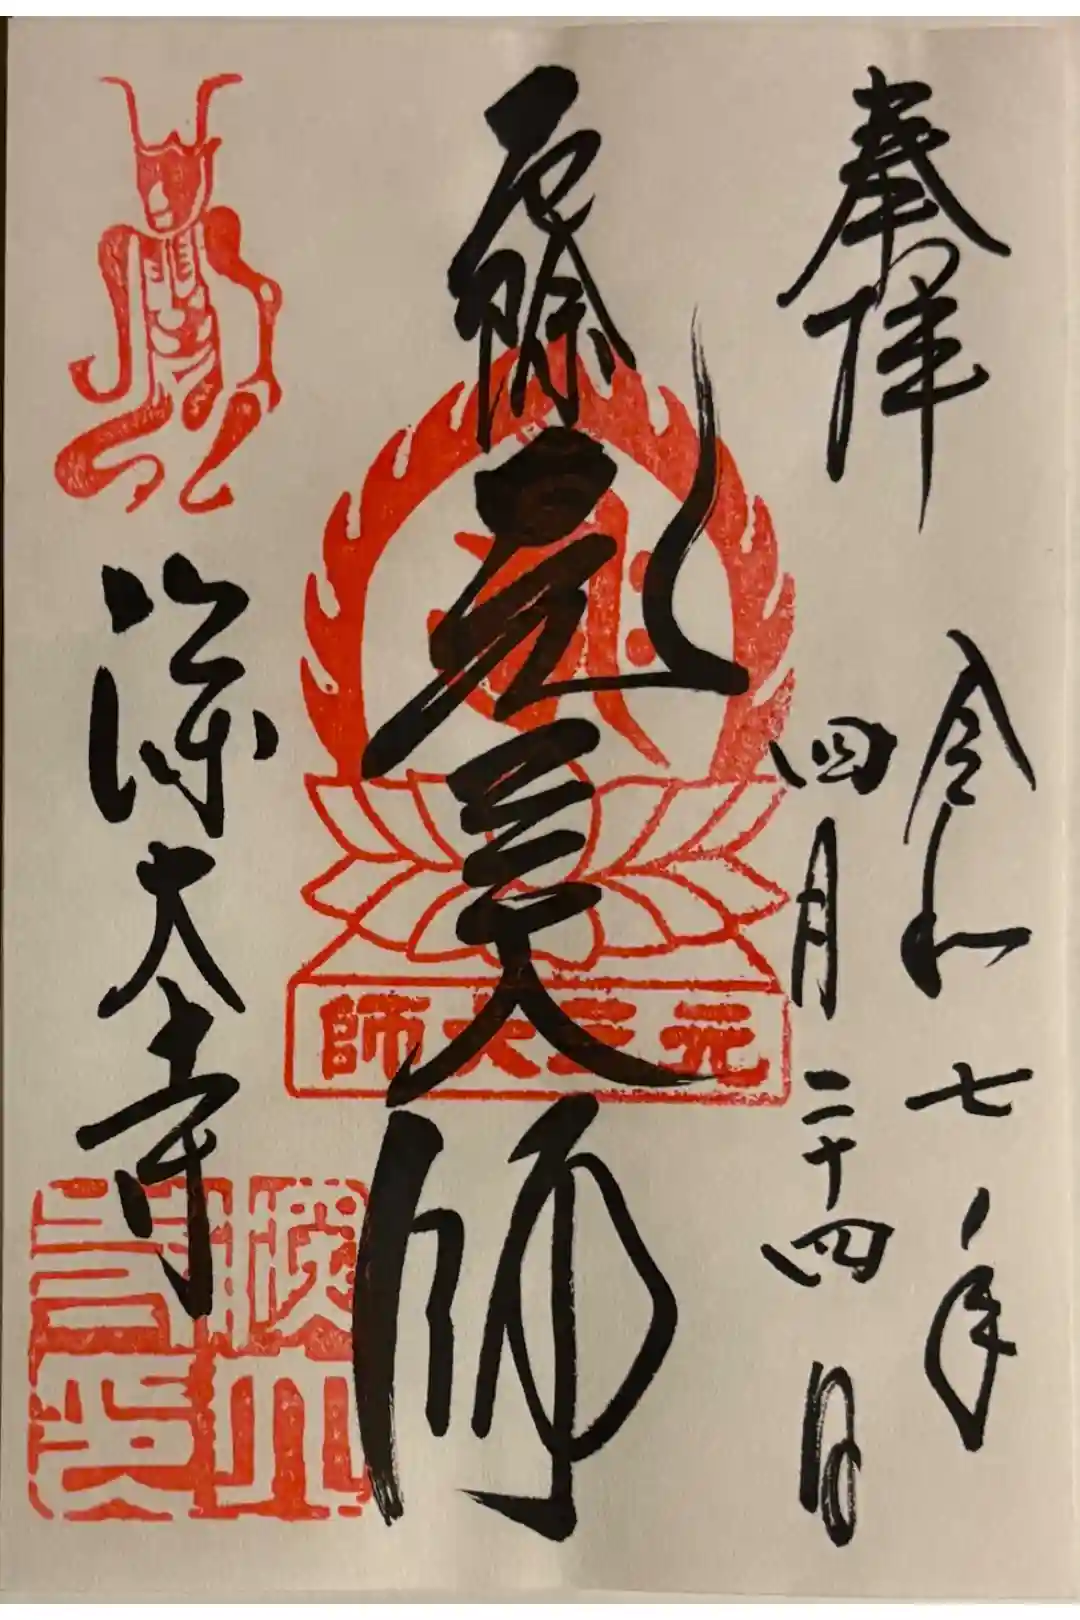 奉拝
令和七年
四月二十四日
厄除
元三大師
元三大師
深大寺
深大寺印